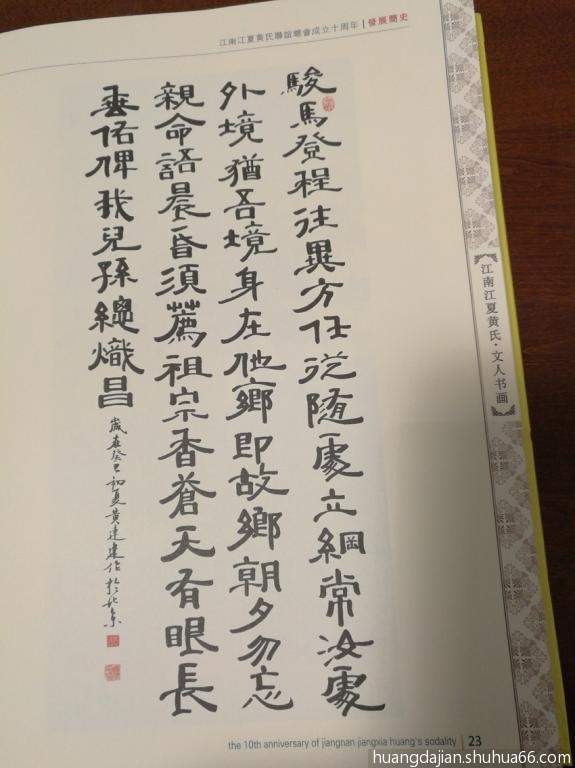 江南江夏黄氏聯誼總會成立十周年 | 發展簡史
駿馬登程往異方任從隨處立綱常汝處
外境猶吾境身在他鄉即故鄉朝夕勿忘
親命語晨昏須薦祖宗香蒼天有眼長
垂佑俾我兒孫總熾昌
歲在癸巳初夏黄達建作於北京
江南江夏黄氏·文人书画
the 10th anniversary of jiangnan jiangxia huang's sodality | 23
huangdajian.shuhua66.com